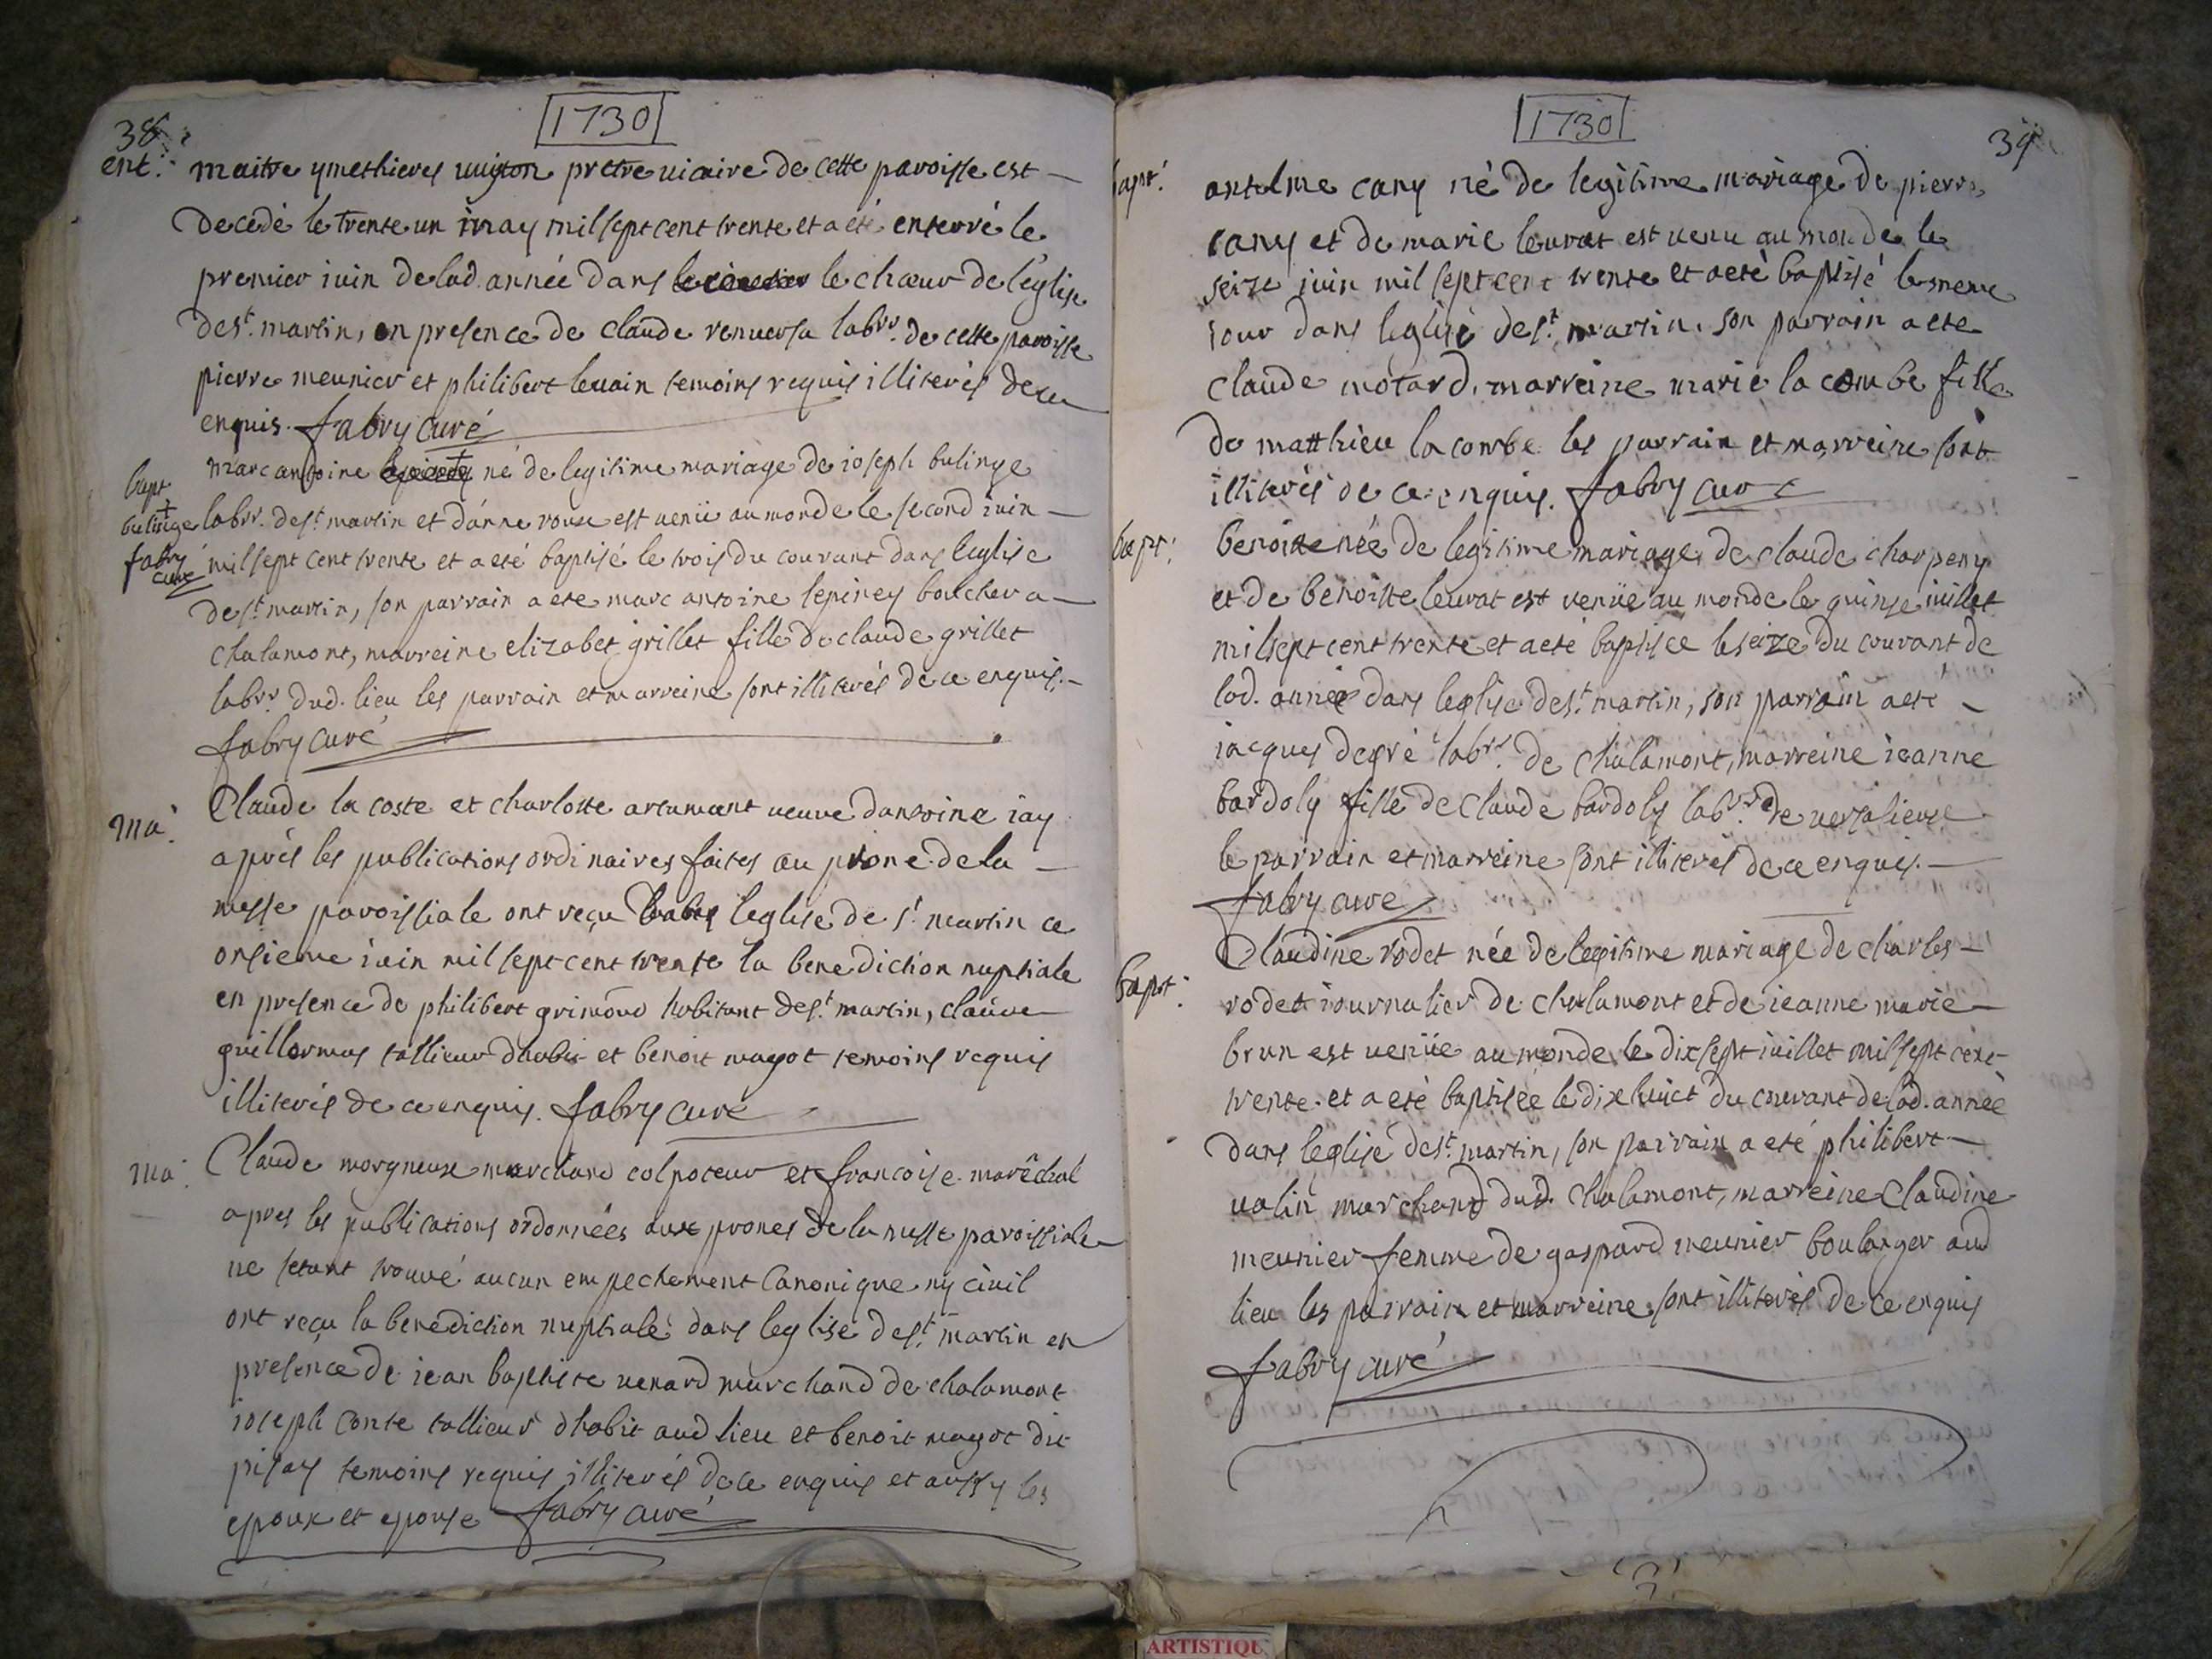 38
1730
ent. maitre ymethieres uugton pretre uicaire de cette paroisse est
decedé le trente un may mil sept cent trente et a eté enterré le
premier iuin de lad. année dans le chœur de l'eglise
de st. martin, en presence de claude renuersa labrr. de cette paroisse
pierre meunier et philibert leuain temoins requis illiterés de ce
enquis. fabry curé
bapt
bulinge
fabry
curé
marc antoine né de legitime mariage de ioseph bulinge
labrr. de st. martin et d'anne roux est uenü au monde le second iuin
mil sept cent trente et a eté baptisé le trois du courant dans leglise
de st. martin, son parrain a ete marc antoine lepiney boucher a
chalamont, marreine elizabet grillet fille de claude grillet
labrr. dud. lieu les parrain et marreine sont illiterés de ce enquis.
fabry curé
ma. Claude la coste et charlotte artumant ueuve dantoine iay
aprés les publications ordinaires faites au prone de la
messe paroissiale ont reçu dans leglise de st. martin ce
onsieme iuin mil sept cent trente la benediction nuptiale
en presence de philibert grimond habitant de st. martin, claude
guillermas tallieur dhabit et benoit magot temoins requis
illiterés de ce enquis. fabry curé
ma. Claude morgneux marchand colpoteur et francoise maréchal
apres les publications ordonnées aux prones de la messe paroissiale
ne setant trouvé aucun empechement canonique ny ciuil
ont reçu la benediction nuptiale dans leglise de st. martin en
presence de iean baptiste uenard marchand de chalamont
ioseph conte tallieur dhabit aud lieu et benoit magot dit
pisay temoins requis illiterés de ce enquis et aussy les
epoux et epouse fabry curé
1730
39
bapt. antelme cany né de legitime mariage de pierre
cany et de marie leurat est uenu au monde le
seize iuin mil sept cent trente et a eté baptisé le meme
iour dans leglise de st. martin. son parrain a ete
claude motard. marreine marie la combe fille
de matthieu la combe les parrain et marreine sont
illiterés de ce enquis. fabry curé
bapt. benoitte née de legitime mariage de claude charpeny
et de benoitte leurat est uenüe au monde le quinse iuillet
mil sept cent trente et a eté baptisee le seize du courant de
lad. année dans leglise de st. martin, son parrain a eté
iacques degré labrr. de chalamont, marreine ieanne
bardoly fille de claude bardoly labrr. de uersalieux
le parrain et marreine sont illiterés de ce enquis.
fabry curé
bapt. Claudine rodet née de legitime mariage de charles
rodet iournalier de chalamont et de ieanne marie
brun est uenüe au monde le dix sept iuillet mil sept cent
trente. et a eté baptisée le dix huict du courant de lad. année
dans leglise de st. martin, son parrain a eté philibert
ualin marchand dud. chalamont, marreine Claudine
meunier femme de gaspard meunier boulanger aud
lieu les parrain et marreine sont illiterés de ce enquis
fabry curé
ARTISTIQU